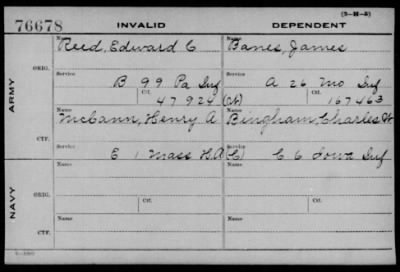 (3-H-5)
76678 INVALID DEPENDENT
Name Name
Reed, Edward C Banes, James
ORIG.
Service Service
B 99 Pa Inf A 26 Mo Inf
Ctf. Ctf.
47924 (Ct) 167463
ARMY
Name Name
McCann, Henry A Bingham, Charles W
CTF.
Service Service
E 1 Mass H.A (C) C 6 Iowa Inf
Name Name
ORIG.
Service Service
Ctf. Ctf.
NAVY
Name Name
CTF.
Service Service